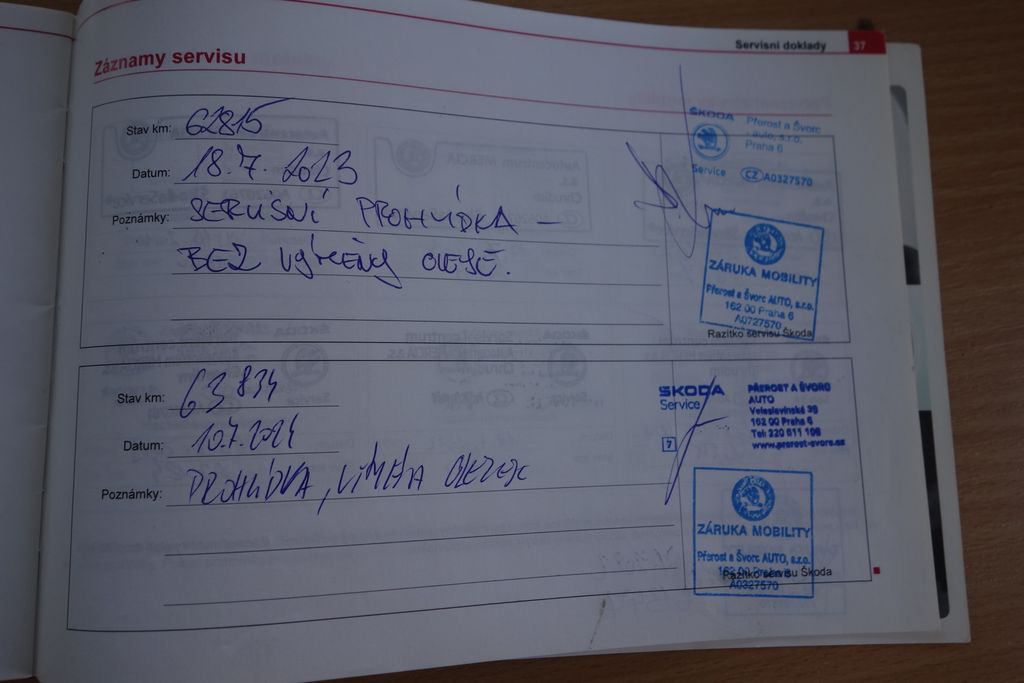 Servisní doklady 37
Záznamy servisu
Stav km: 62815
Datum: 18.7.2023
Poznámky: SERVISNÍ PROHLÍDKA –
BEZ VÝMĚNY OLEJE.
ŠKODA
Service
Přerost a Švorc
auto, s.r.o.
Praha 6
CZ A0327570
ZÁRUKA MOBILITY
Přerost a Švorc AUTO, s.r.o.
162 00 Praha 6
A0727570
Razítko servisu Škoda
Stav km: 63834
Datum: 10.7.2024
Poznámky: PROHLÍDKA, VÝMĚNA
ŠKODA
Service
7
PŘEROST A ŠVORC
AUTO
Veleslavínská 39
162 00 Praha 6
Tel: 220 611 106
www.prerost-svorc.cz
ZÁRUKA MOBILITY
Přerost a Švorc AUTO, s.r.o.
162 00 Praha 6
Razítko servisu Škoda
A0327570